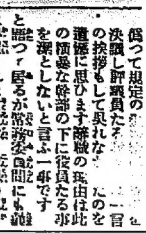 偽つて規定の
決議し評議員たる 一言
の挨拶もして呉れな たのを
遺憾に思ひます辭職の理由は此
の横暴な幹部の下に役員たる事
を潔としないと言ふ一事です
と語つて居るが常務委員間にも